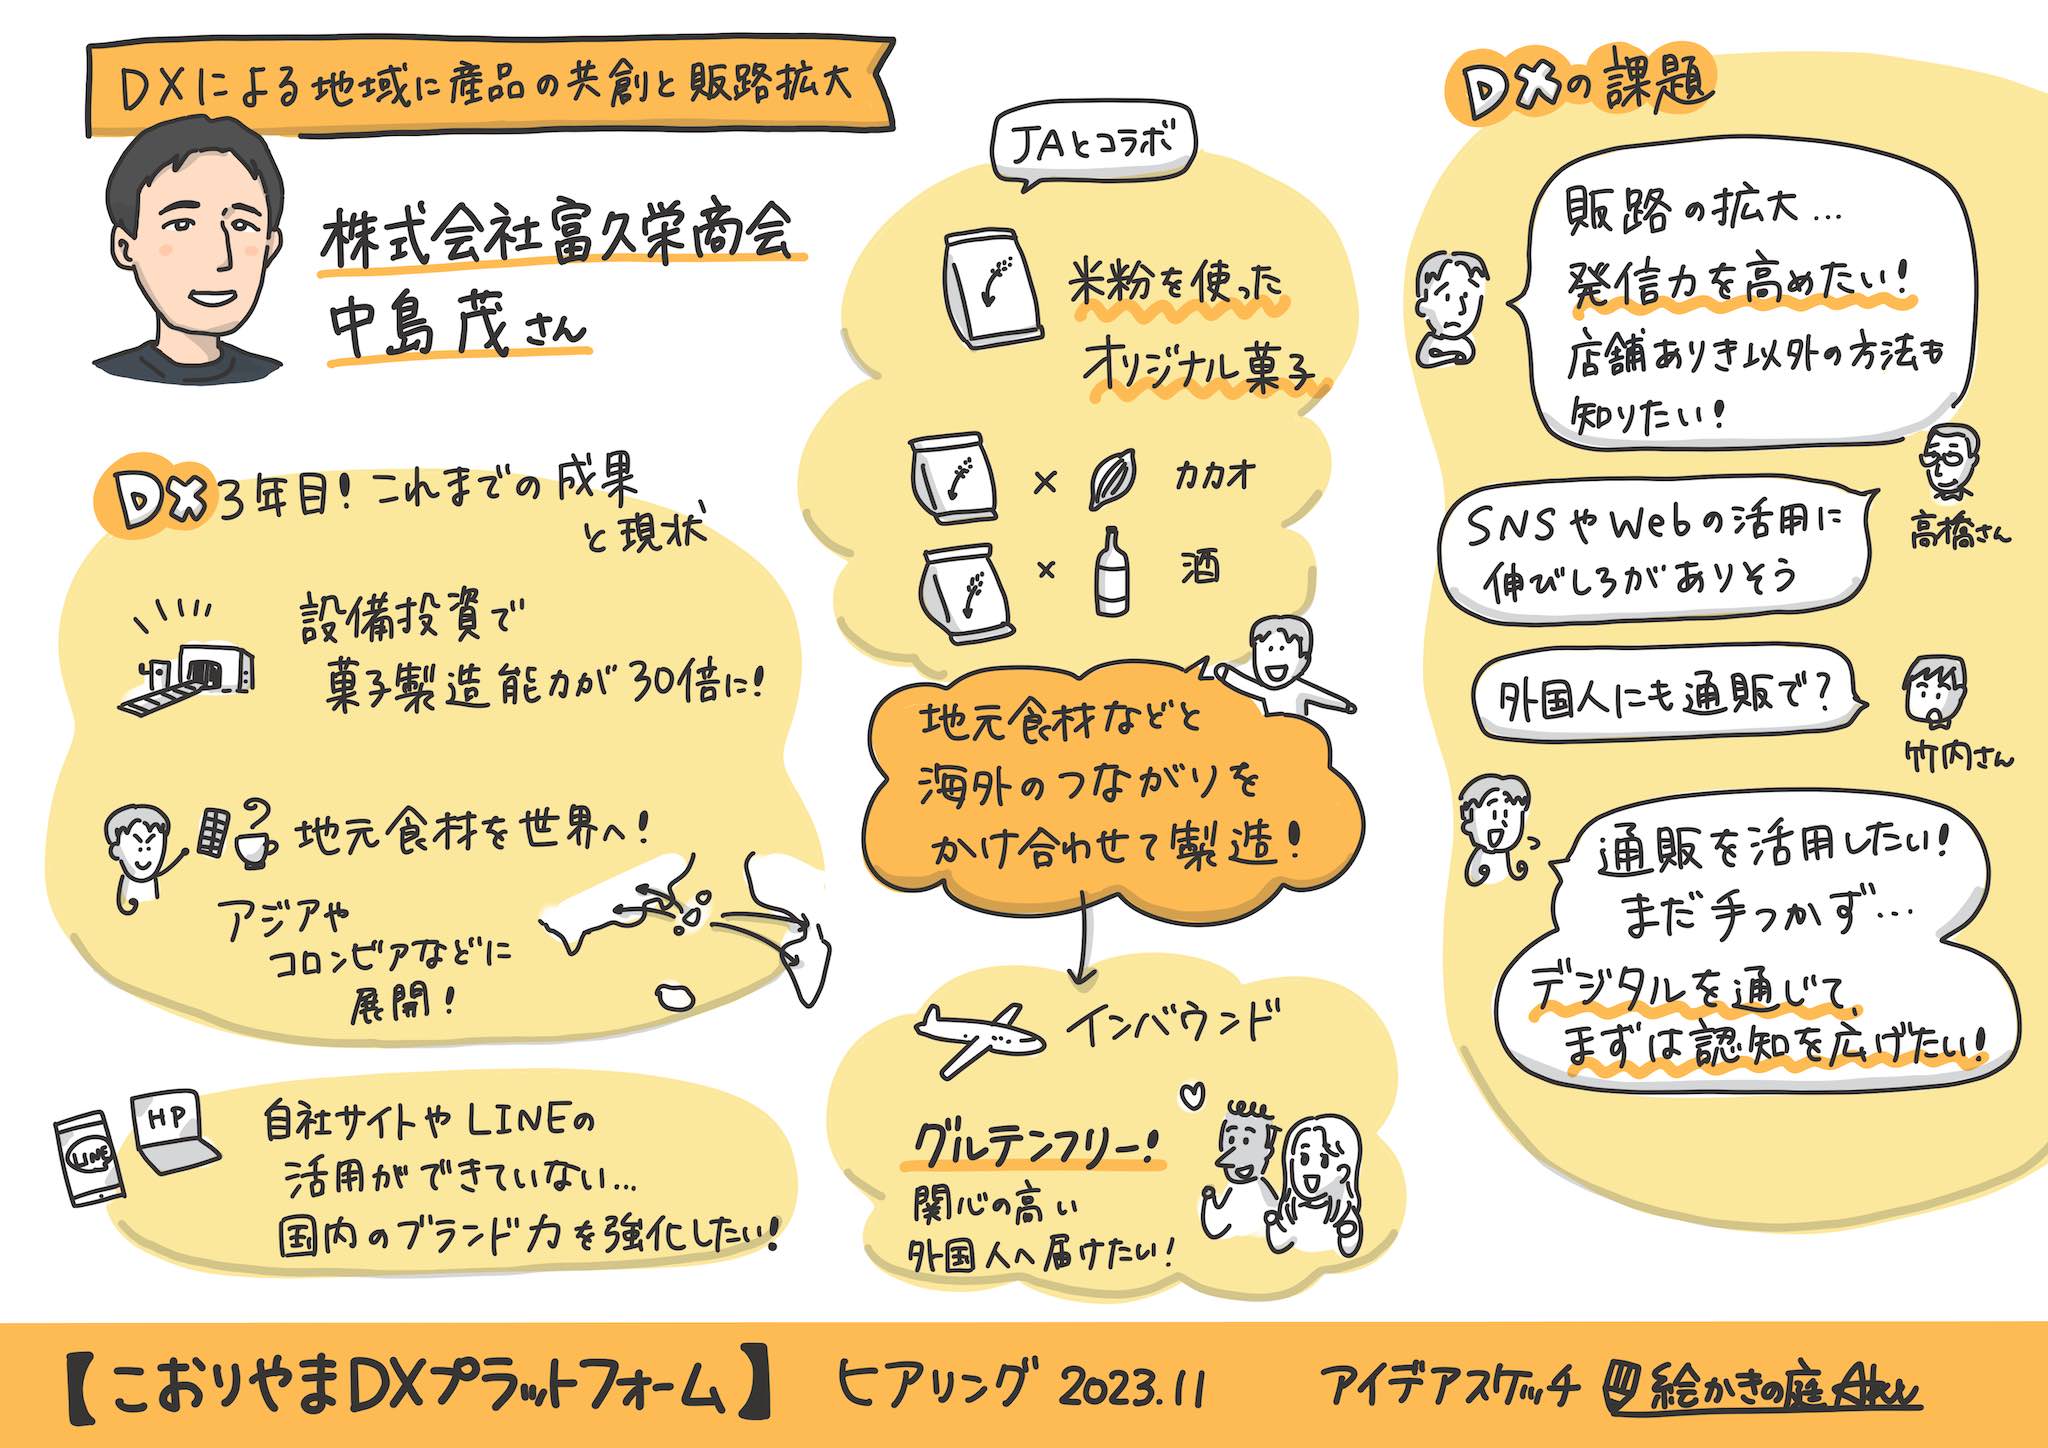 DXによる地域に産品の共創と販路拡大
株式会社富久栄商会
中島茂さん
DX3年目!これまでの成果
と現状
設備投資で
菓子製造能力が30倍に!
地元食材を世界へ!
アジアや
コロンビアなどに
展開!
HP
LINE
自社サイトやLINEの
活用ができていない...
国内のブランド力を強化したい!
JAとコラボ
米粉を使った
オリジナル菓子
× カカオ
× 酒
地元食材などと
海外のつながりを
かけ合わせて製造!
インバウンド
グルテンフリー!
関心の高い
外国人へ届けたい!
DXの課題
販路の拡大...
発信力を高めたい!
店舗ありき以外の方法も
知りたい!
高橋さん
SNSやWebの活用に
伸びしろがありそう
外国人にも通販で?
竹内さん
通販を活用したい!
まだ手つかず...
デジタルを通じて、
まずは認知を広げたい!
【こおりやまDXプラットフォーム】 ヒアリング 2023.11 アイデアスケッチ 絵かきの庭 Aku